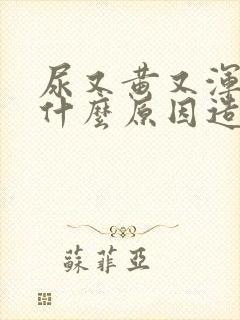 尿又黄又渾
什麼原因造
蘇菲亞